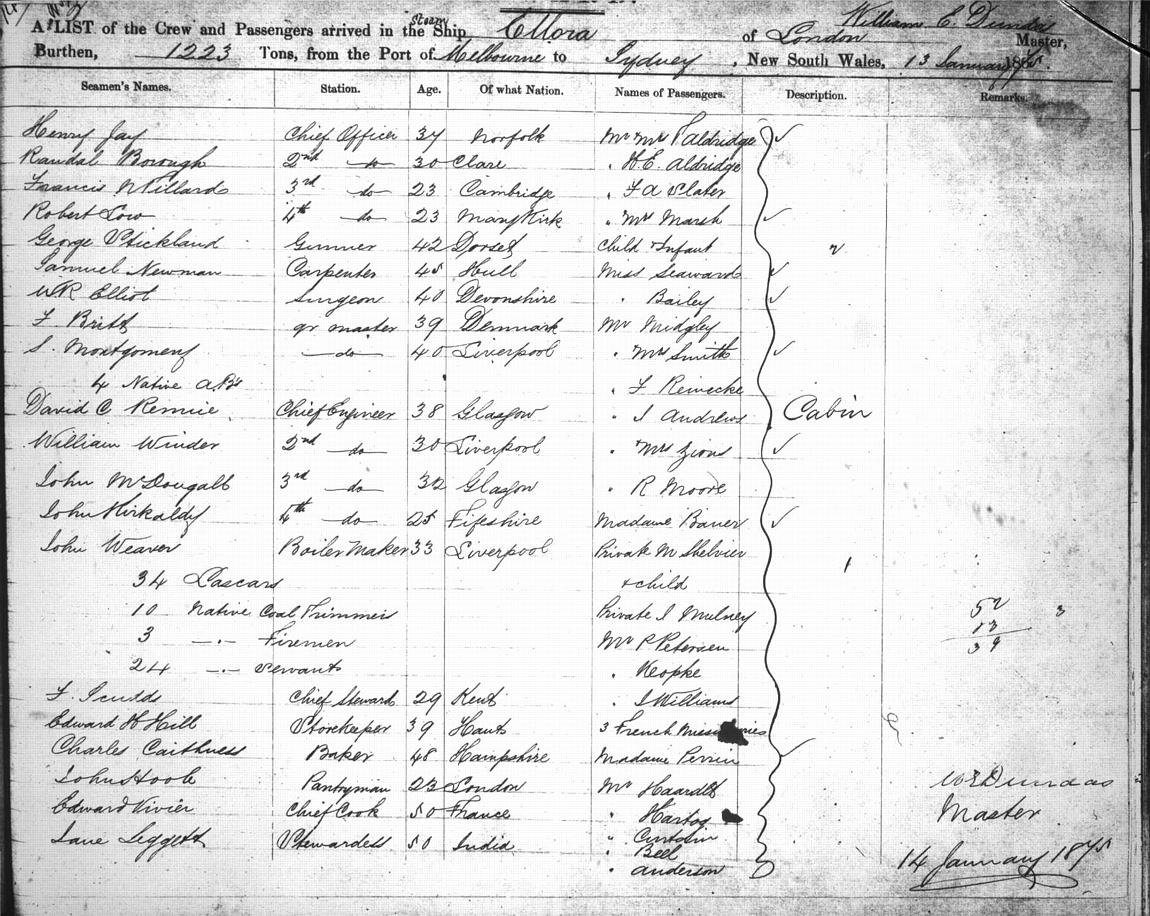 William E. Dundas
A LIST of the Crew and Passengers arrived in the Steam Ship Ellora of London Master,
Burthen, 1223 Tons, from the Port of Melbourne to Sydney, New South Wales, 13 January 1875.
Seamen's Names. Station. Age. Of what Nation. Names of Passengers. Description. Remarks.
Henry Jay Chief Officer 37 Norfolk Mr Mrs Aldridge
Randal Borough 2nd do 30 Clare " H.E. Aldridge
Francis Willards 3rd do 23 Cambridge " F A Slater
Robert Low 4th do 23 " Mrs Marsh
George Stickland Gunner 42 Dorset Child Infant 2
Samuel Newman Carpenter 45 Hull Miss Seaward
WR Elliot Surgeon 40 Devonshire " Bailey
F Britt qr master 39 Denmark Mr Midgley
S. Montgomery do 40 Liverpool " Mrs Smith
4 Native A.B's " F Reinecke
David C Rennie Chief Engineer 38 Glasgow " J Andrews Cabin
William Winder 2nd do 30 Liverpool " Mrs Zions
John McDougall 3rd do 32 Glasgow " R Moore
John Kirkaldy 4th do 25 Fifeshire Madame Bauer
John Weaver Boiler Maker 33 Liverpool Private M 1
34 Lascars + child
10 Native Coal Trimmers Private J Mulney 52 3
3 " Firemen Mr P Petersen 13
24 " Servants " Keopke 39
F. Chief Steward 29 Kent " J Williams
Edward H Hill Storekeeper 39 Hants 3 French
Charles Caithness Baker 48 Hampshire Madame Perrin
John Hoole Pantryman 22 London Mr Haardt WE Dundas
Edward Vivier Chief Cook 50 France " Hartog Master
Jane Leggett Stewardess 50 India " Curtain
" Bell 14 January 1875
" Anderson